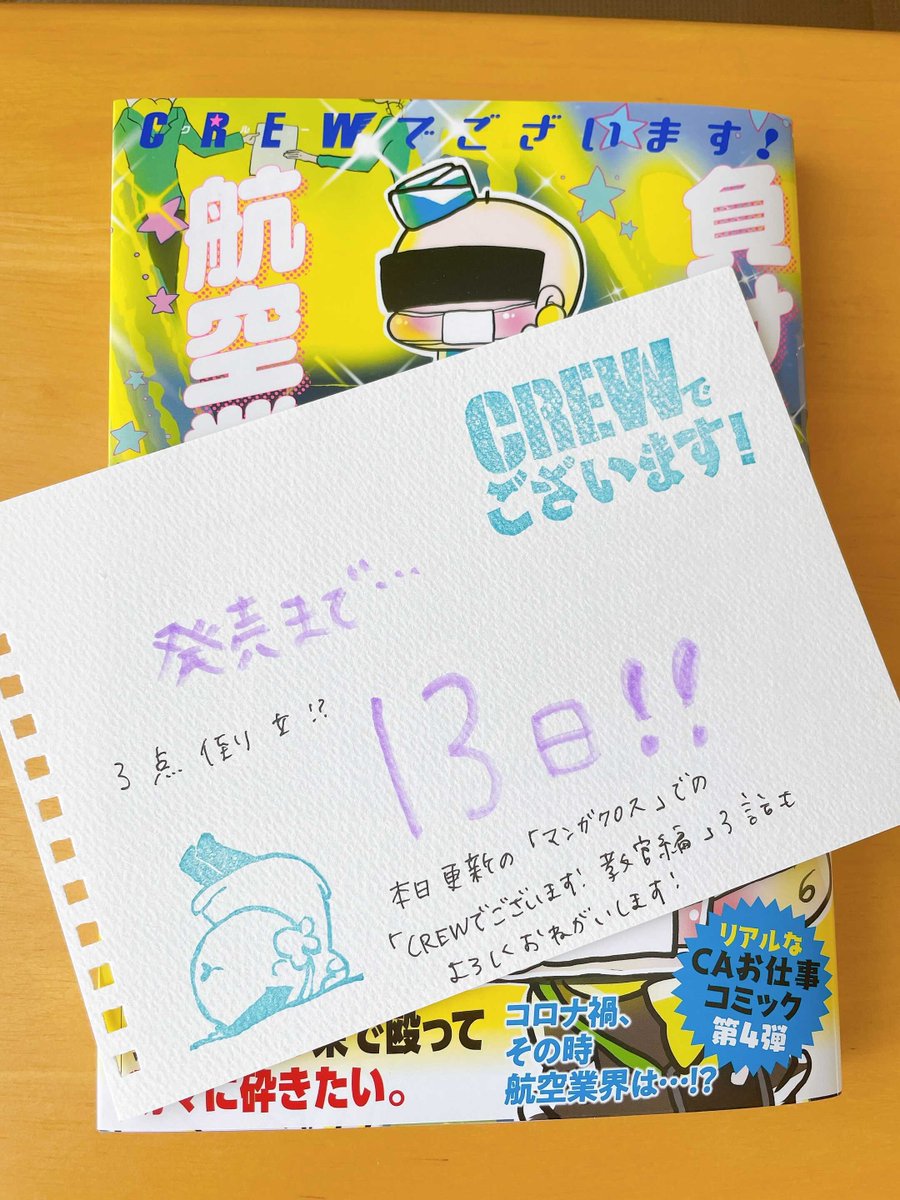 CREWでございます!
航空業
負け
CREWで
ございます!
発売まで…
13日!!
3点倒立!?
本日更新の「マンガクロス」での
「CREWでございます!教官編」3話も
よろしくおねがいします!
6
リアルな
CAお仕事
コミック
第4弾
で殴って
に砕きたい。
コロナ禍、
その時
航空業界は…!?